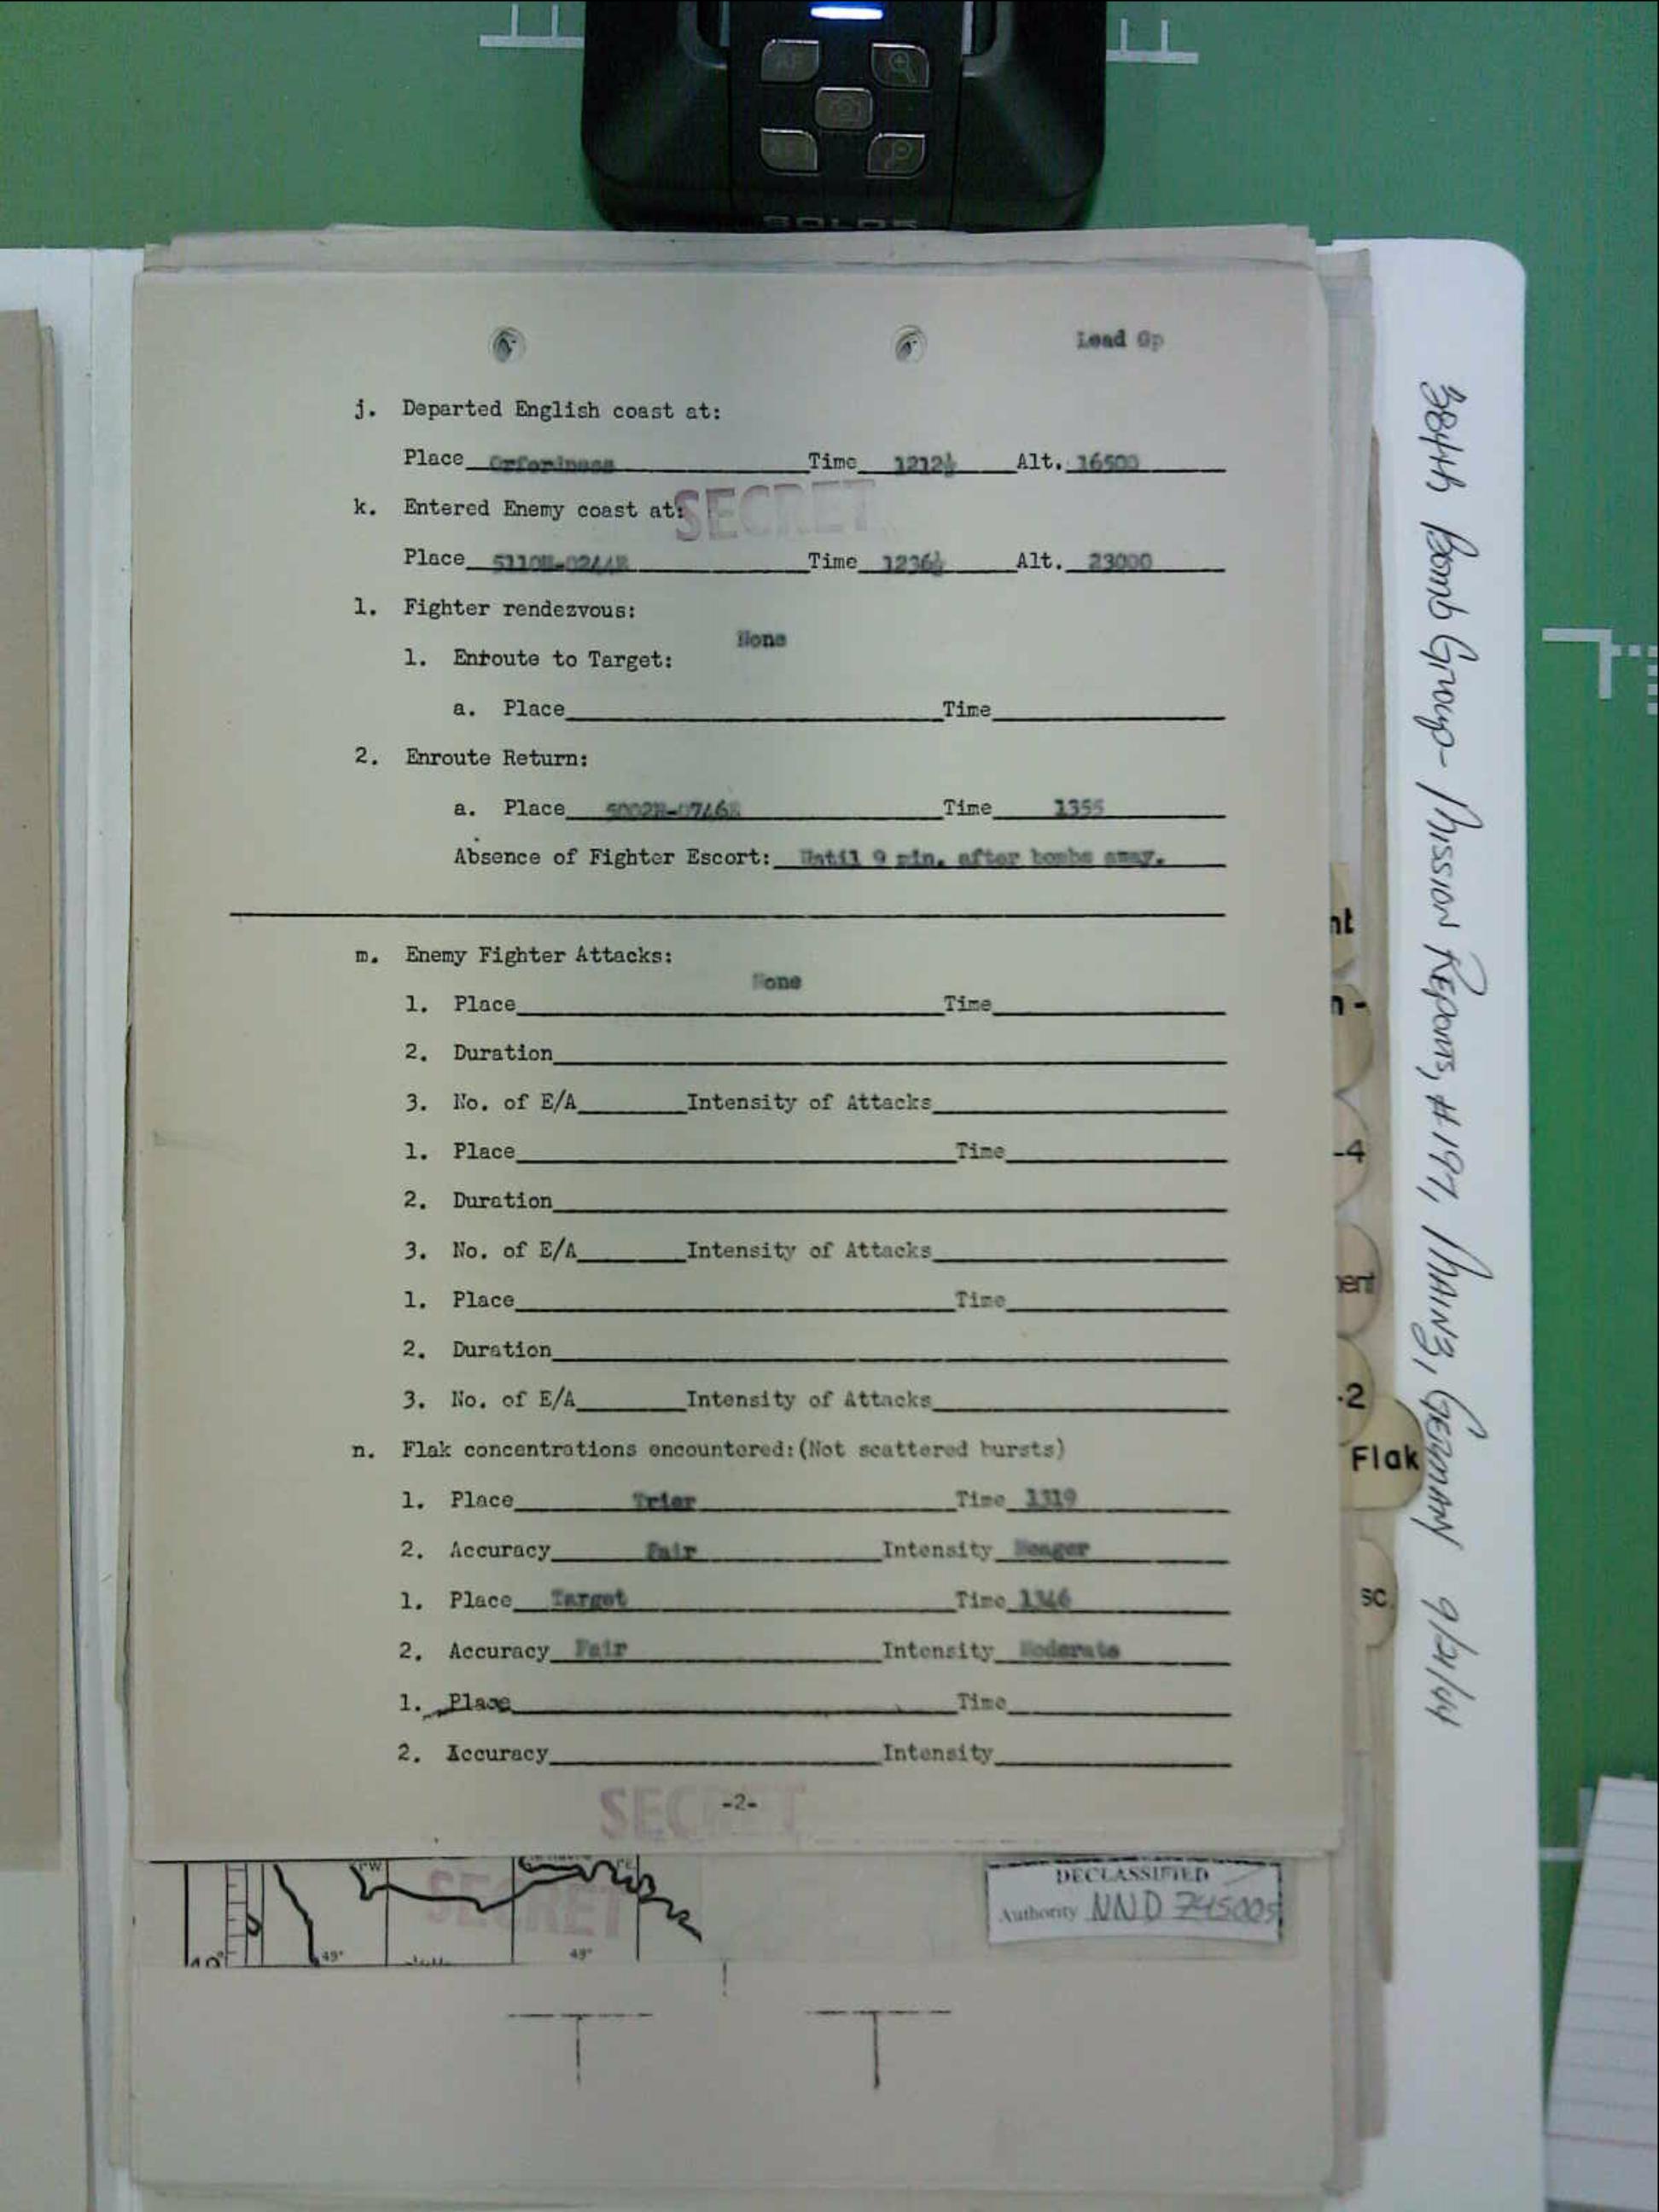 AF
SOLO8
Lead Gp
j. Departed English coast at:
Place Orfordness Time 1212½ Alt. 16500
SECRET
k. Entered Enemy coast at:
Place 5110N-0244E Time 1236½ Alt. 23000
l. Fighter rendezvous:
None
1. Enroute to Target:
a. Place Time
2. Enroute Return:
a. Place 5002N-0746E Time 1355
Absence of Fighter Escort: Until 9 min. after bombs away.
m. Enemy Fighter Attacks:
None
1. Place Time
2. Duration
3. No. of E/A Intensity of Attacks
1. Place Time
2. Duration
3. No. of E/A Intensity of Attacks
1. Place Time
2. Duration
3. No. of E/A Intensity of Attacks
n. Flak concentrations encountered:(Not scattered bursts)
1. Place Trier Time 1319
2. Accuracy Fair Intensity Meager
1. Place Target Time 1346
2. Accuracy Fair Intensity Moderate
1. Place Time
2. Accuracy Intensity
-2-
SECRET
SECRET
49°
49°
DECLASSIFIED
Authority NND 745005
nt
n -
-4
ent
-2
Flak
sc.
384th Bomb Group - Mission Reports, #197, Mainz, Germany 9/21/44